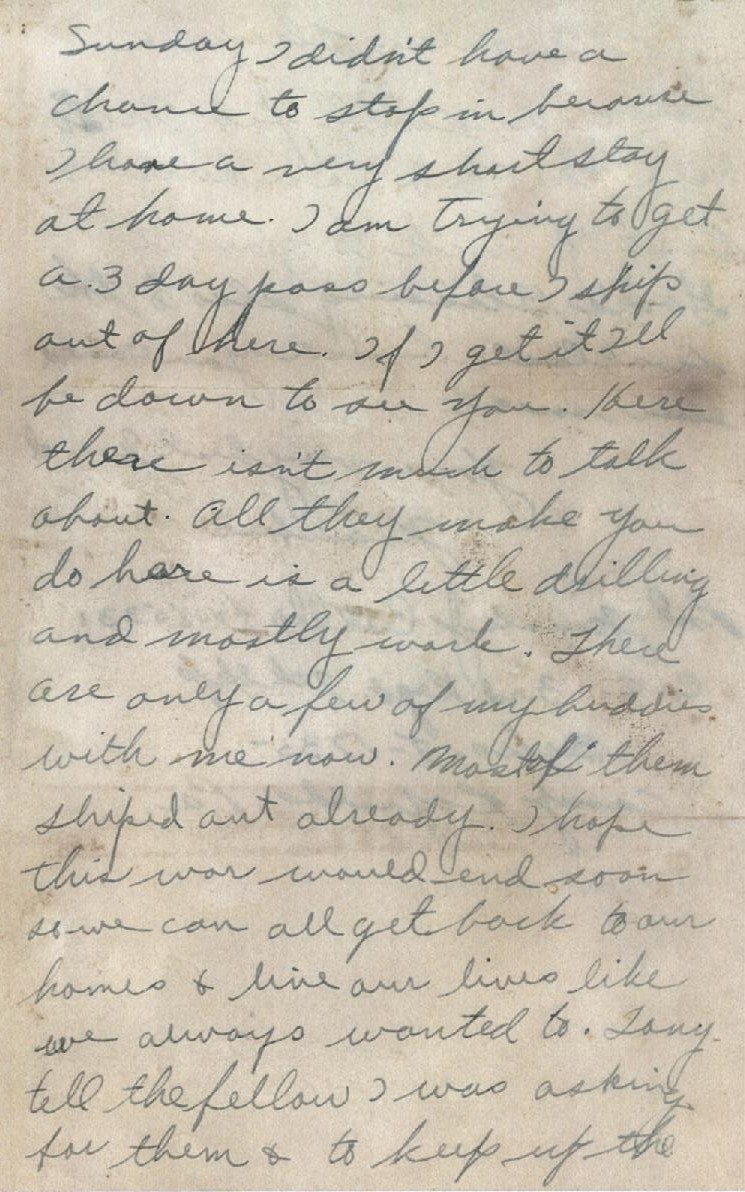 Sunday I didn't have a
chance to stop in because
I have a very short stay
at home. I am trying to get
a 3 day pass before I ship
out of here. If I get it I'll
be down to see you. Here
there isn't much to talk
about. All they make you
do here is a little drilling
and mostly work. There
are only a few of my buddies
with me now. Most of them
shiped out already. I hope
this war would end soon
so we can all get back to our
homes & live our lives like
we always wanted to. Tony
tell the fellow I was asking
for them & to keep up the